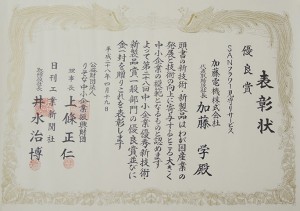 表彰状
優良賞
SANフラワー見守りサービス
加藤電機株式会社
代表取締役社長 加藤 学 殿
頭書の新技術・新製品はわが国産業の
発展と技術の向上に寄与するところ大きく
中小企業の模範となるものと認めます
よって第二十八回中小企業優秀新技術・
新製品賞一般部門の優良賞並びに
金一封を贈りこれを表彰します
平成二十八年四月十九日
公益財団法人
りそな中小企業振興財団
理事長 上條正仁
日刊工業新聞社
取締役社長 井水治博